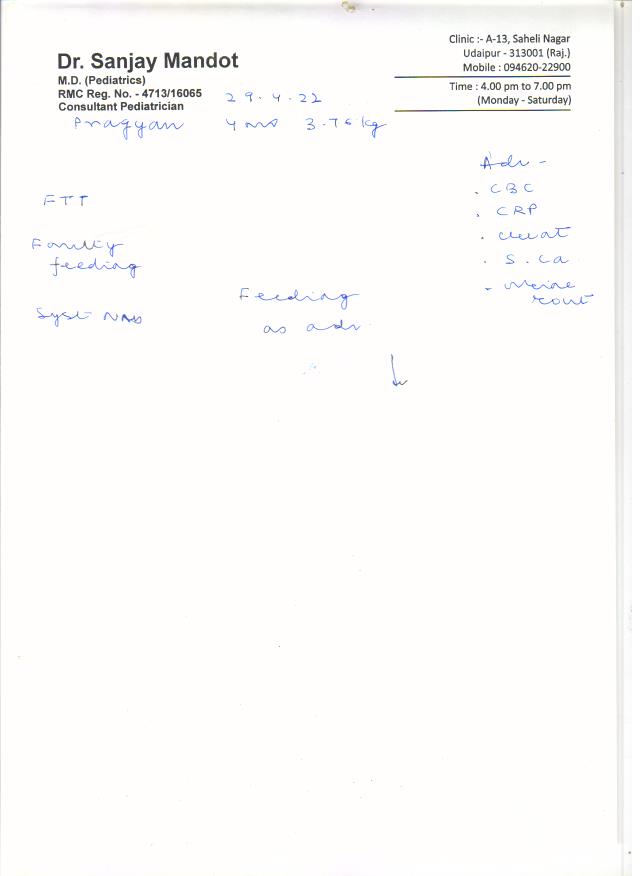 Dr. Sanjay Mandot
M.D. (Pediatrics)
RMC Reg. No. - 4713/16065
Consultant Pediatrician
Clinic :- A-13, Saheli Nagar
Udaipur - 313001 (Raj.)
Mobile : 094620-22900
Time : 4.00 pm to 7.00 pm
(Monday - Saturday)
29.4.22
Pragyan 4 mo 3.76 kg
FTT
Faulty
feeding
Syst NAD
Feeding
as adv
Adv -
. CBC
. CRP
. creat
. S. Ca
- Urine
rout